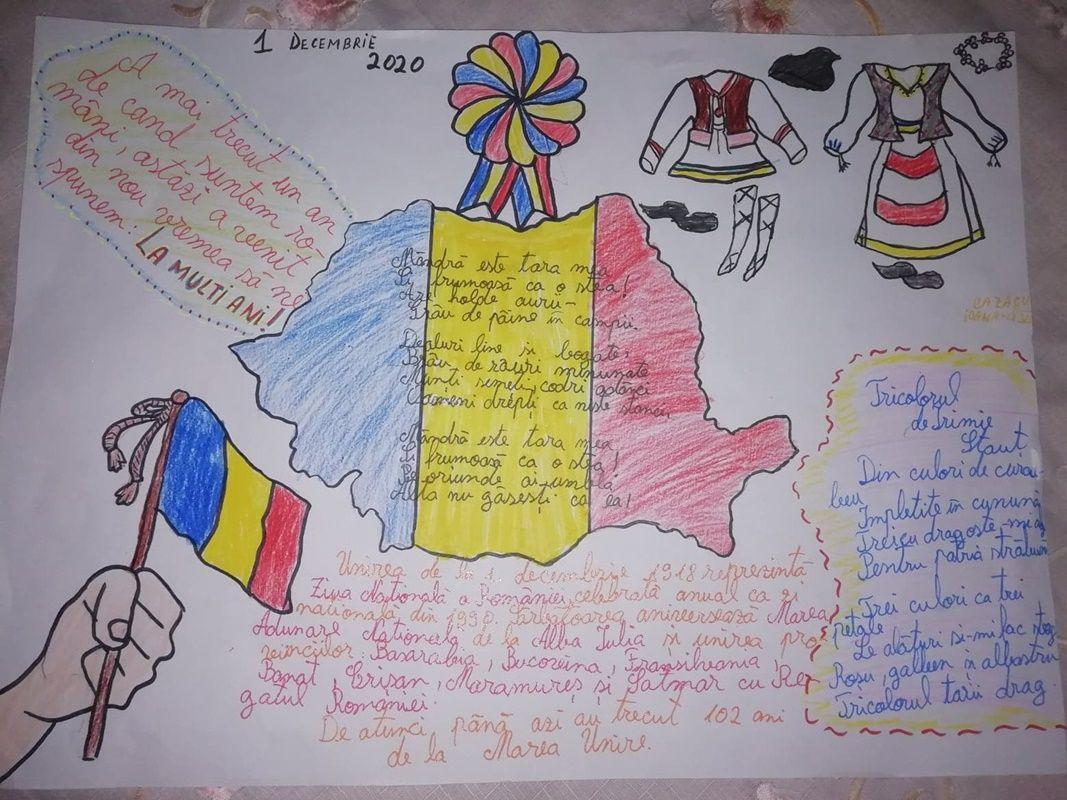 1 DECEMBRIE
2020
A mai trecut un an
de cand suntem ro-
mâni, astăzi a venit
din nou vremea să ne
spunem:
LA MULTI ANI!
Mândră este tara mea
Și frumoasă ca o stea!
Are holde aurii-
Grâu de pâine în campii.
Dealuri line si bogate,
Brâu de râuri minunate
Munți semeți, codri
Oameni drepti ca niste stanci,
Mândră este tara mea
Și frumoasă ca o stea!
Pe oriunde ai umbla
Alta nu găsesti ca ea!
Unirea de la 1 decembrie 1918 reprezintă
Ziua Natională a României, celebrată anual ca zi
natională din 1990. Sărbătoarea aniversează Marea
Adunare Natională de la Alba Iulia și unirea pro
vinciilor: Basarabia, Bucovina, Transilvania,
Banat, Crișan, Maramureș și Satmar cu Re
gatul României.
De atunci, până azi au trecut 102 ani
de la Marea Unire.
CAZACU
Tricolorul
de Irimie
Străuț
Din culori de curcu-
beu
Impletite în cununa
Trescu dragoste
Pentru patria
Trei culori ca trei
petale
Le alături si-mi fac
Roșu, galben și albastru
Tricolorul tarii drag